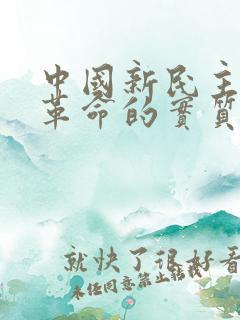 中國新民主
革命的實質
就快了很好看
未經同意禁止轉載